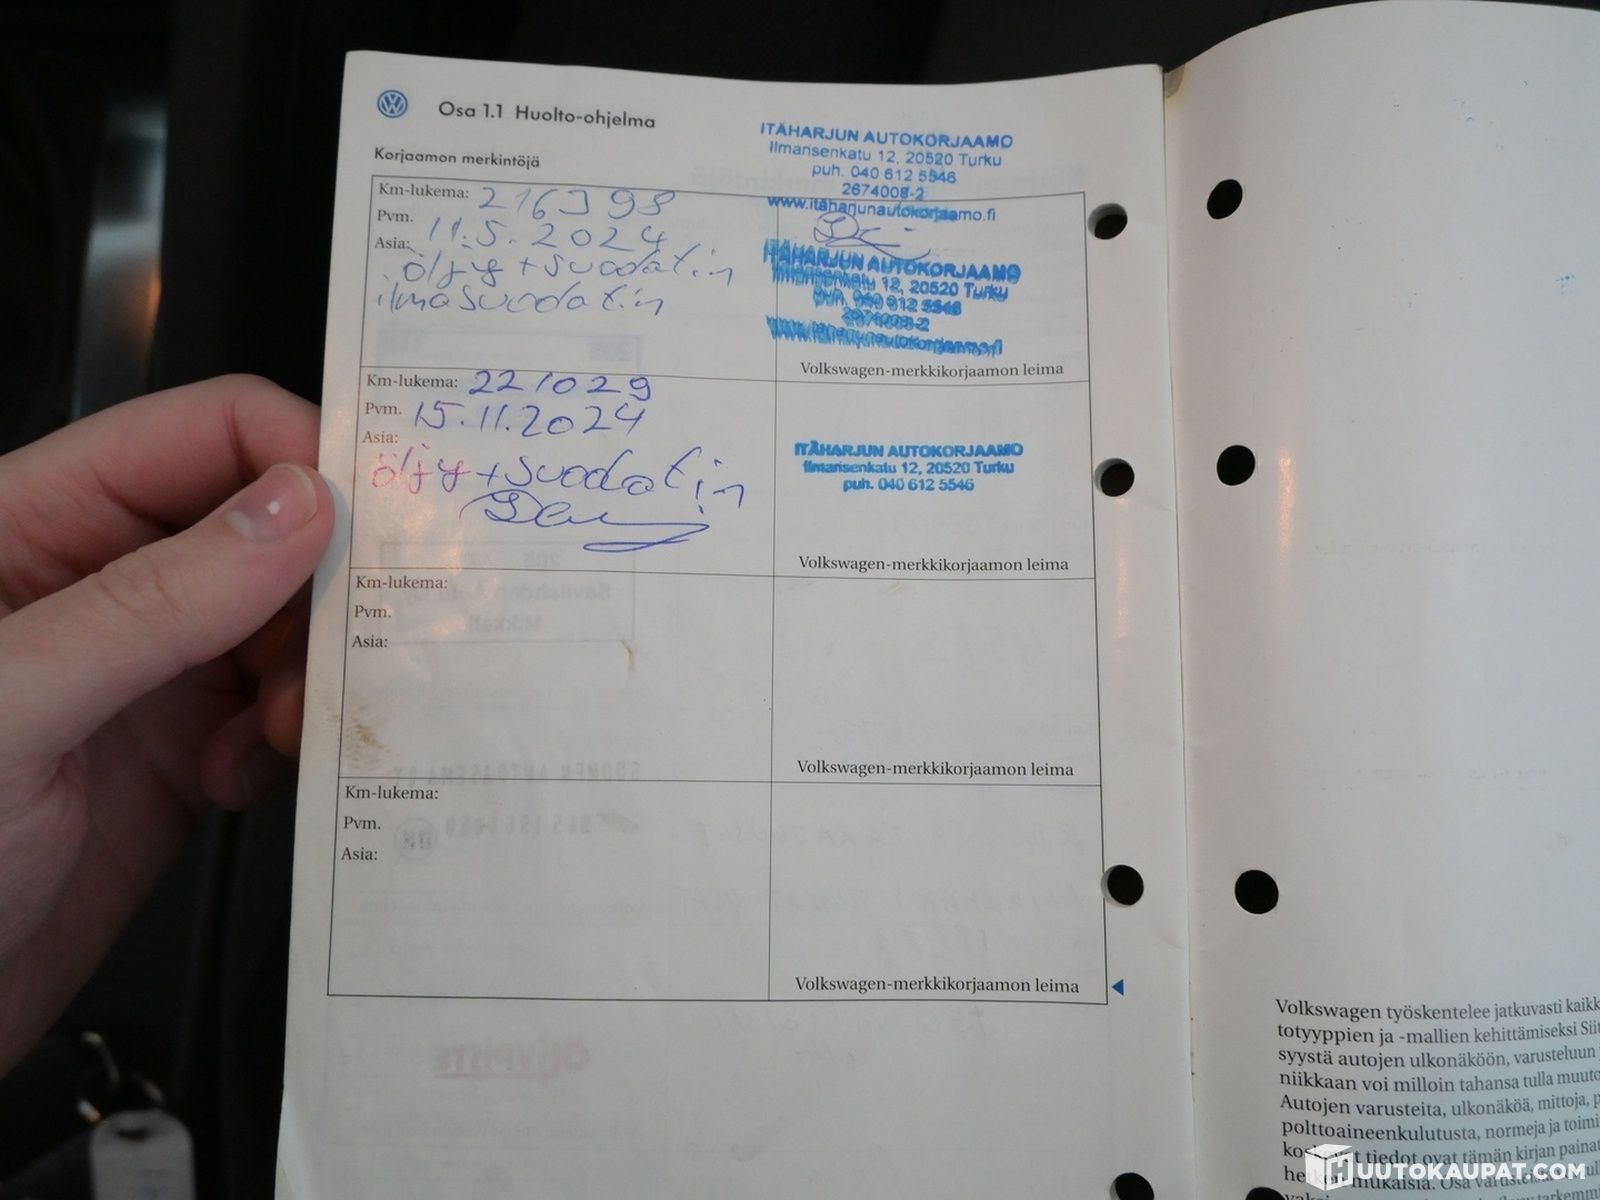 Osa 1.1 Huolto-ohjelma
Korjaamon merkintöjä
ITÄHARJUN AUTOKORJAAMO
Ilmarisenkatu 12, 20520 Turku
puh. 040 612 5546
2674008-2
www.itäharjunautokorjaamo.fi
Km-lukema: 216398
Pvm. 11.5.2024
Asia:
öljy + suodatin
ilmasuodatin
ITÄHARJUN AUTOKORJAAMO
Ilmarisenkatu 12, 20520 Turku
puh. 040 612 5546
2674008-2
www.itäharjunautokorjaamo.fi
Volkswagen-merkkikorjaamon leima
Km-lukema: 221029
Pvm. 15.11.2024
Asia:
öljy + suodatin
ITÄHARJUN AUTOKORJAAMO
Ilmarisenkatu 12, 20520 Turku
puh. 040 612 5546
Volkswagen-merkkikorjaamon leima
Km-lukema:
Pvm.
Asia:
Volkswagen-merkkikorjaamon leima
Km-lukema:
Pvm.
Asia:
Volkswagen-merkkikorjaamon leima
Volkswagen työskentelee jatkuvasti
totyyppien ja -mallien kehittämiseksi
syystä autojen ulkonäköön, varusteluun
niikkaan voi milloin tahansa tulla
Autojen varusteita, ulkonäköä, mittoja,
polttoaineenkulutusta, normeja ja
tiedot ovat tämän kirjan
mukaisia. Osa
HUUTOKAUPAT.COM